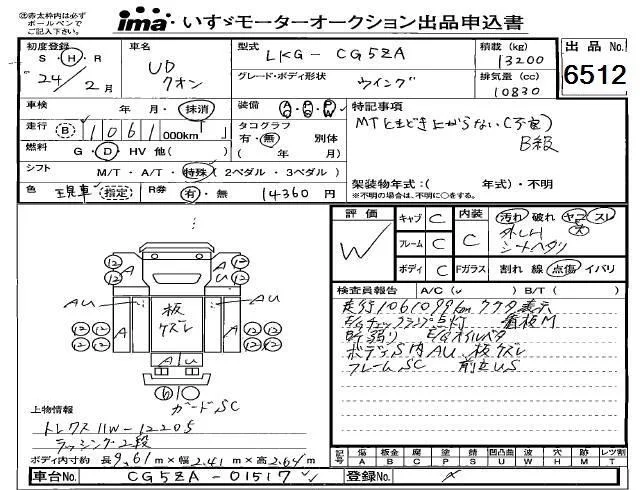 ㊟赤太枠内は必ず
ボールペンで
ご記入下さい。
ima・いすゞモーターオークション出品申込書
初度登録 S・H・R 24年 2月
車名 UD クオン
型式 LKG-CG5ZA
グレード・ボディ形状 ウイング
積載 (kg) 13200
排気量 (cc) 10830
出品No. 6512
車検 年・月・抹消
装備 AC PS PW
走行 B 1061 000km
タコグラフ 有・無 別体 ( 年 / 月)
燃料 G・D・HV 他( )
シフト M/T・A/T・特殊(2ペダル・3ペダル)
色 現車 指定 R券 有・無 14360円
特記事項
MTときどき上がらない(不定)
B級
架装物年式:( 年式)・不明
※不明の場合は、不明に○をする。
評価 W
キャブ C
フレーム C
ボディ C
内装 C
汚れ 破れ ヤコゲ スレ
シートヘタリ
Fガラス 割れ 線 点傷 イバリ
検査員報告 A/C( ✓ ) B/T( )
走行1061099km
E/Gチェックランプ点灯 看板M
ボデーS 内AU 板ズレ
フレームSC
12 12 A A 12 12
AU AU
12 12 A 板ズレ A 12 12
12 12 12 12
A U
ガードSC
上物情報
トレクス11W-12205
ラッシング2段
ボディ内寸約 長9.61m×幅2.41m×高2.64m
記号 傷A 板金B 腐C 塗P 錆S 凹凸曲U 波W 穴H 跡M レツ割T
車台No. CG5ZA-01517
登録No.